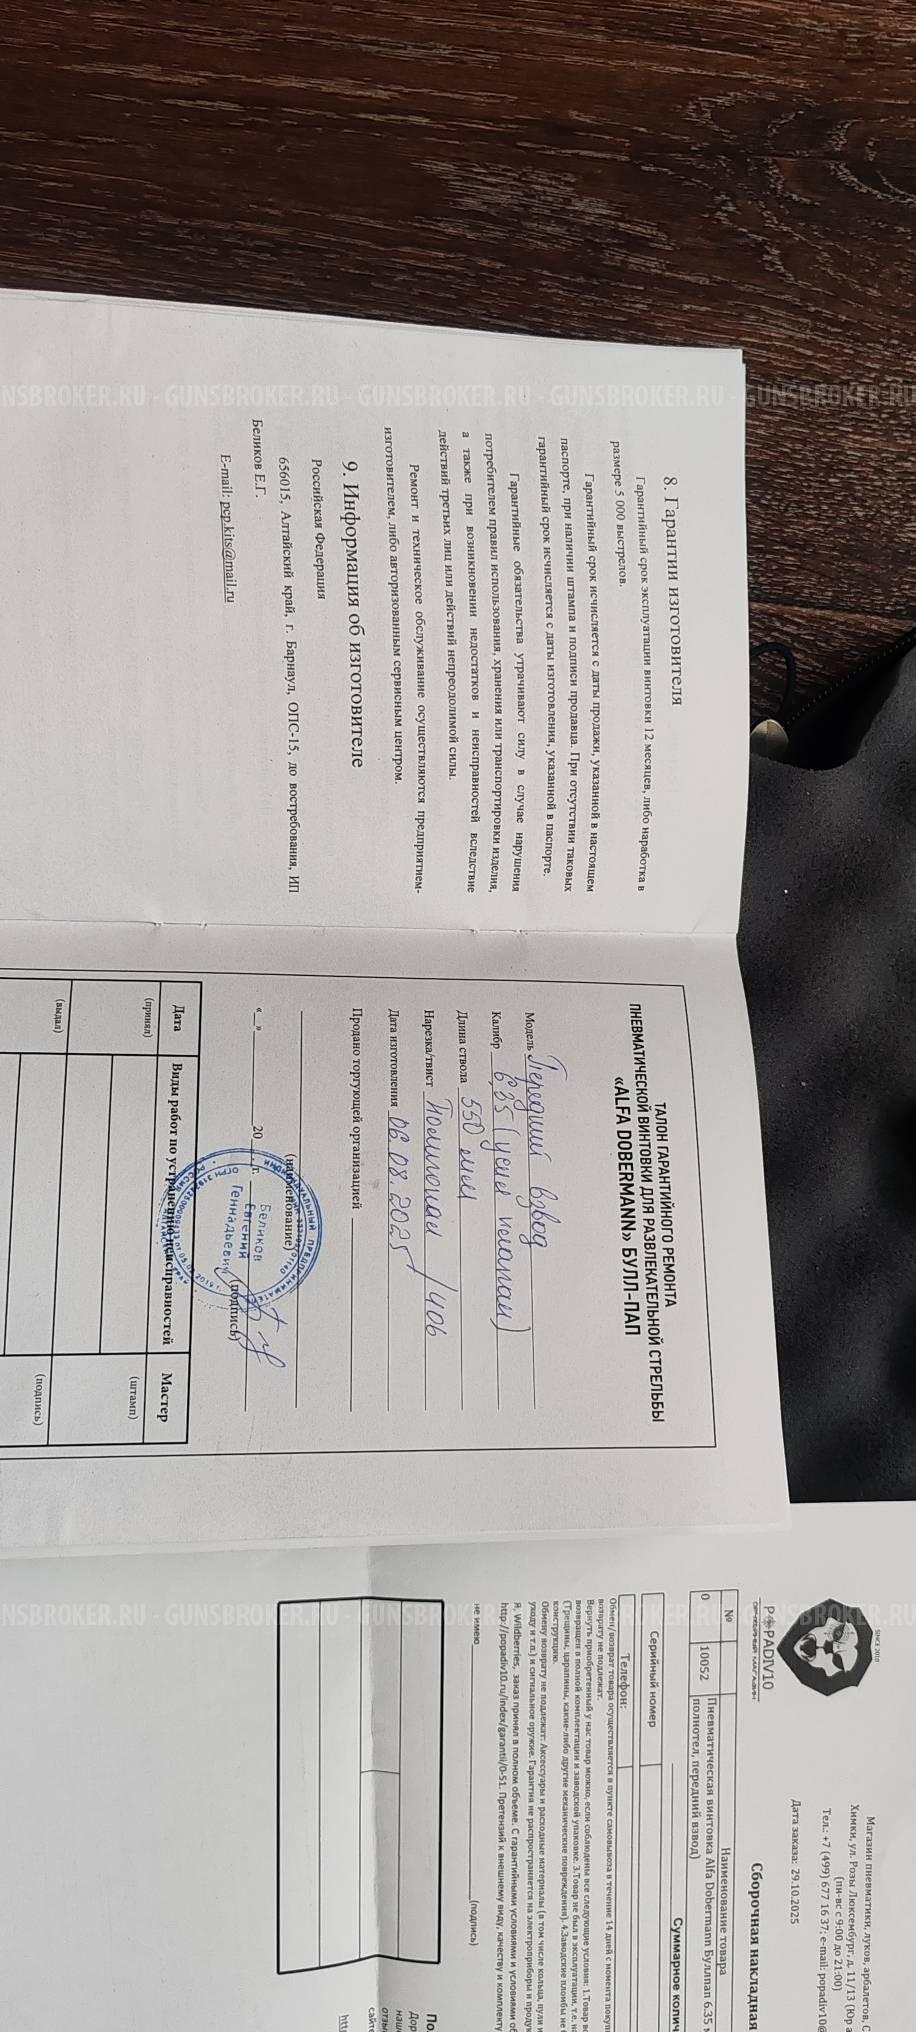 NSBROKER.RU - GUNSBROKER.RU - GUNSBROKER.RU - GUNSBROKER.RU - GUNSBROKER.RU
8. Гарантии изготовителя
Гарантийный срок эксплуатации винтовки 12 месяцев, либо наработка в
размере 5 000 выстрелов.
Гарантийный срок исчисляется с даты продажи, указанной в настоящем
паспорте, при наличии штампа и подписи продавца. При отсутствии таковых
гарантийный срок исчисляется с даты изготовления, указанной в паспорте.
Гарантийные обязательства утрачивают силу в случае нарушения
потребителем правил использования, хранения или транспортировки изделия,
а также при возникновении недостатков и неисправностей вследствие
действий третьих лиц или действий непреодолимой силы.
Ремонт и техническое обслуживание осуществляются предприятием-
изготовителем, либо авторизованным сервисным центром.
9. Информация об изготовителе
Российская Федерация
656015, Алтайский край, г. Барнаул, ОПС-15, до востребования, ИП
Беликов Е.Г.
E-mail: pcp.kits@mail.ru
ТАЛОН ГАРАНТИЙНОГО РЕМОНТА
ПНЕВМАТИЧЕСКОЙ ВИНТОВКИ ДЛЯ РАЗВЛЕКАТЕЛЬНОЙ СТРЕЛЬБЫ
«ALFA DOBERMANN» БУЛЛ-ПАП
Модель Передний взвод
Калибр 6,35
Длина ствола 550 мм
Нарезка/твист Полигонал / 406
Дата изготовления 06.08.2025
Продано торгующей организацией
(наименование)
« » 20 г. (подпись)
ИНДИВИДУАЛЬНЫЙ ПРЕДПРИНИМАТЕЛЬ
Беликов
Евгений
Геннадьевич
Дата Виды работ по устранению неисправностей Мастер
(принял) (штамп)
(выдал) (подпись)
NSBROKER.RU - GUNSBROKER.RU - GUNSBROKER.RU - GUNSBROKER.RU - GUNSBROKER.RU
SINCE 2010
POPADIV10
Магазин пневматики, луков, арбалетов, С
Химки, ул. Розы Люксембург, д. 11/13 (Юр
(пн-вс с 9:00 до 21:00)
Тел.: +7 (499) 677 16 37; e-mail: popadiv10@
Дата заказа: 29.10.2025
Сборочная накладная
№ Наименование товара
0 10052 Пневматическая винтовка Alfa Dobermann Буллпап 6.35
полнотел, передний взвод)
Суммарное колич
Серийный номер
Телефон:
Обмен/возврат товара осуществляется в пункте самовывоза в течение 14 дней с момента покуп
возврату не подлежат.
Вернуть приобретенный у нас товар можно, если соблюдены все следующие условия: 1.Товар в
возвращен в полной комплектации и заводской упаковке. 3.Товар не был в эксплуатации, т.е. н
(Трещины, царапины, какие-либо другие механические повреждения). 4.Заводские пломбы не
конструкцию.
Обмену возврату не подлежат: Аксессуары и расходные материалы (в том числе кольца, пули и
уходу и т.п.) и сигнальное оружие. Гарантия не распространяется на электроприборы и проду
Я, Wildberries, заказ принял в полном объеме. С гарантийными условиями и условиями об
http://popadiv10.ru/index/garantii/0-51. Претензий к внешнему виду, качеству и комплекту
не имею (подпись)
По
Дор
наш
отзы
сайт
http